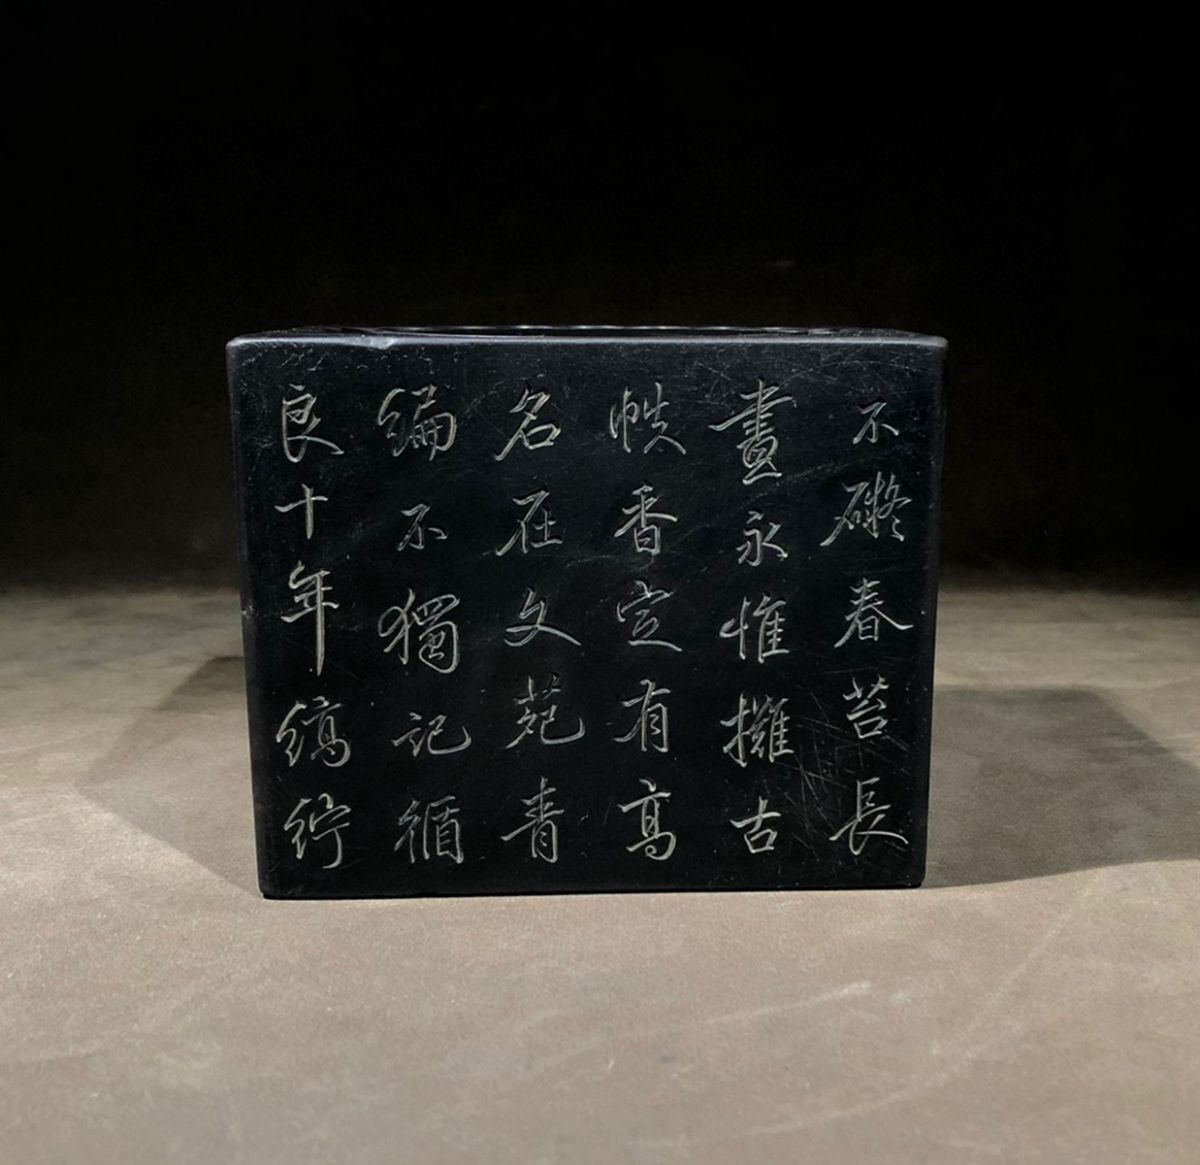 不礙春苔長
畫永惟擁古
帙香定有高
名在文苑青
編不獨記循
良十年縞紵